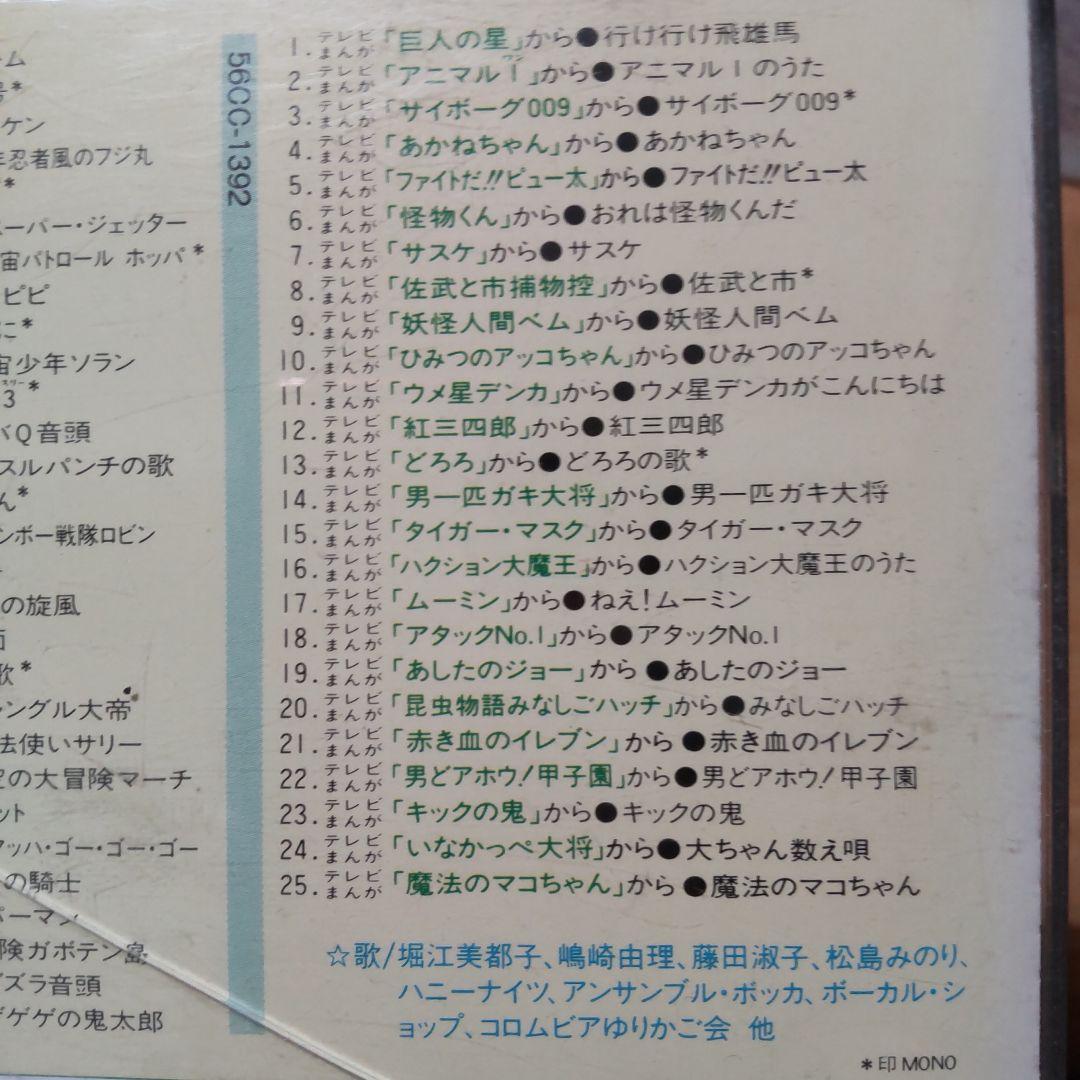 ーム
号*
ケン
年忍者風のフジ丸
*
ーパー・ジェッター
宙パトロール ホッパ*
ピピ
こ*
宙少年ソラン
スリー
3*
バQ音頭
スルパンチの歌
ん*
ンボー戦隊ロビン
の旋風
面
歌*
ャングル大帝
法使いサリー
空の大冒険マーチ
ット
アッハ・ゴー・ゴー・ゴー
の騎士
パーマン
険ガボテン島
ブズラ音頭
ゲゲゲの鬼太郎
56CC-1392
1. テレビまんが「巨人の星」から●行け行け飛雄馬
2. テレビまんが「アニマル1」から●アニマル1のうた
ワン
3. テレビまんが「サイボーグ009」から●サイボーグ009*
4. テレビまんが「あかねちゃん」から●あかねちゃん
5. テレビまんが「ファイトだ!!ピュー太」から●ファイトだ!!ピュー太
6. テレビまんが「怪物くん」から●おれは怪物くんだ
7. テレビまんが「サスケ」から●サスケ
8. テレビまんが「佐武と市捕物控」から●佐武と市*
9. テレビまんが「妖怪人間ベム」から●妖怪人間ベム
10. テレビまんが「ひみつのアッコちゃん」から●ひみつのアッコちゃん
11. テレビまんが「ウメ星デンカ」から●ウメ星デンカがこんにちは
12. テレビまんが「紅三四郎」から●紅三四郎
13. テレビまんが「どろろ」から●どろろの歌*
14. テレビまんが「男一匹ガキ大将」から●男一匹ガキ大将
15. テレビまんが「タイガー・マスク」から●タイガー・マスク
16. テレビまんが「ハクション大魔王」から●ハクション大魔王のうた
17. テレビまんが「ムーミン」から●ねえ!ムーミン
18. テレビまんが「アタックNo.1」から●アタックNo.1
19. テレビまんが「あしたのジョー」から●あしたのジョー
20. テレビまんが「昆虫物語みなしごハッチ」から●みなしごハッチ
21. テレビまんが「赤き血のイレブン」から●赤き血のイレブン
22. テレビまんが「男どアホウ!甲子園」から●男どアホウ!甲子園
23. テレビまんが「キックの鬼」から●キックの鬼
24. テレビまんが「いなかっぺ大将」から●大ちゃん数え唄
25. テレビまんが「魔法のマコちゃん」から●魔法のマコちゃん
☆歌/堀江美都子、嶋崎由理、藤田淑子、松島みのり、
ハニーナイツ、アンサンブル・ボッカ、ボーカル・シ
ョップ、コロムビアゆりかご会 他
*印 MONO